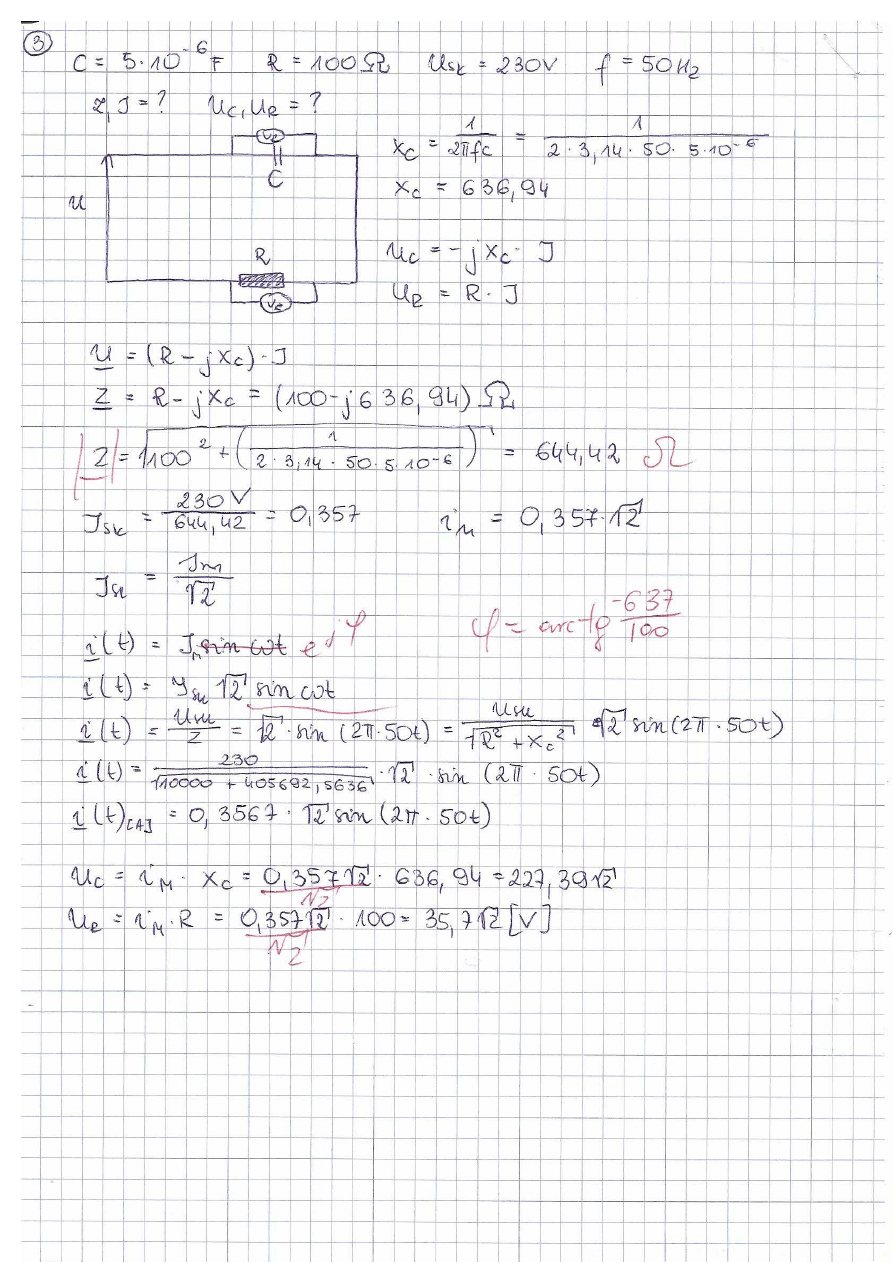 3
C = 5·10⁻⁶ F   R = 100 Ω   Usk = 230V   f = 50Hz
Z, J = ?   UC, UR = ?
xC = 1/(2πfC) = 1/(2·3,14·50·5·10⁻⁶)
C
xC = 636,94
U
R
UC = -jXC · J
UR = R · J
U = (R - jXC) · J
Z = R - jXC = (100 - j636,94) Ω
|Z| = √(100² + (1/(2·3,14·50·5·10⁻⁶))) = 644,42 Ω
Jsk = 230V/644,42 = 0,357   iM = 0,357·√2
Jsk = Jm/√2
i(t) = Jm sin ωt e^jφ   φ = arctg -637/100
i(t) = Jsk √2 sin ωt
i(t) = Usk/Z = √2 · sin (2π·50t) = Usk/√(R² + XC²) · √2 sin(2π·50t)
i(t) = 230/√(10000 + 405692,5636) · √2 · sin (2π · 50t)
i(t)[A] = 0,3567 · √2 sin(2π·50t)
UC = iM · XC = 0,357√2 · 636,94 = 227,39√2
√2
UR = iM · R = 0,357√2 · 100 = 35,7√2 [V]
√2